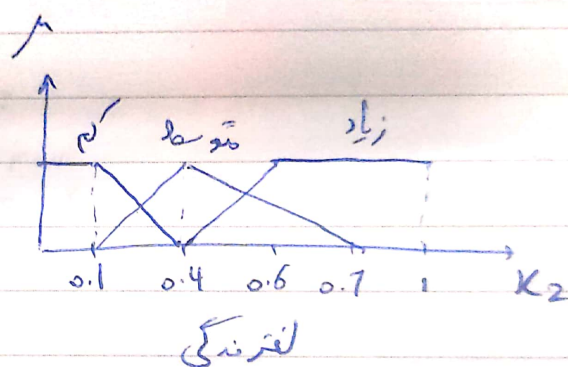 μ
کم متوسط زیاد
0.1 0.4 0.6 0.7 1 x2
لغزندگی